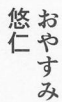 おやすみ
悠仁